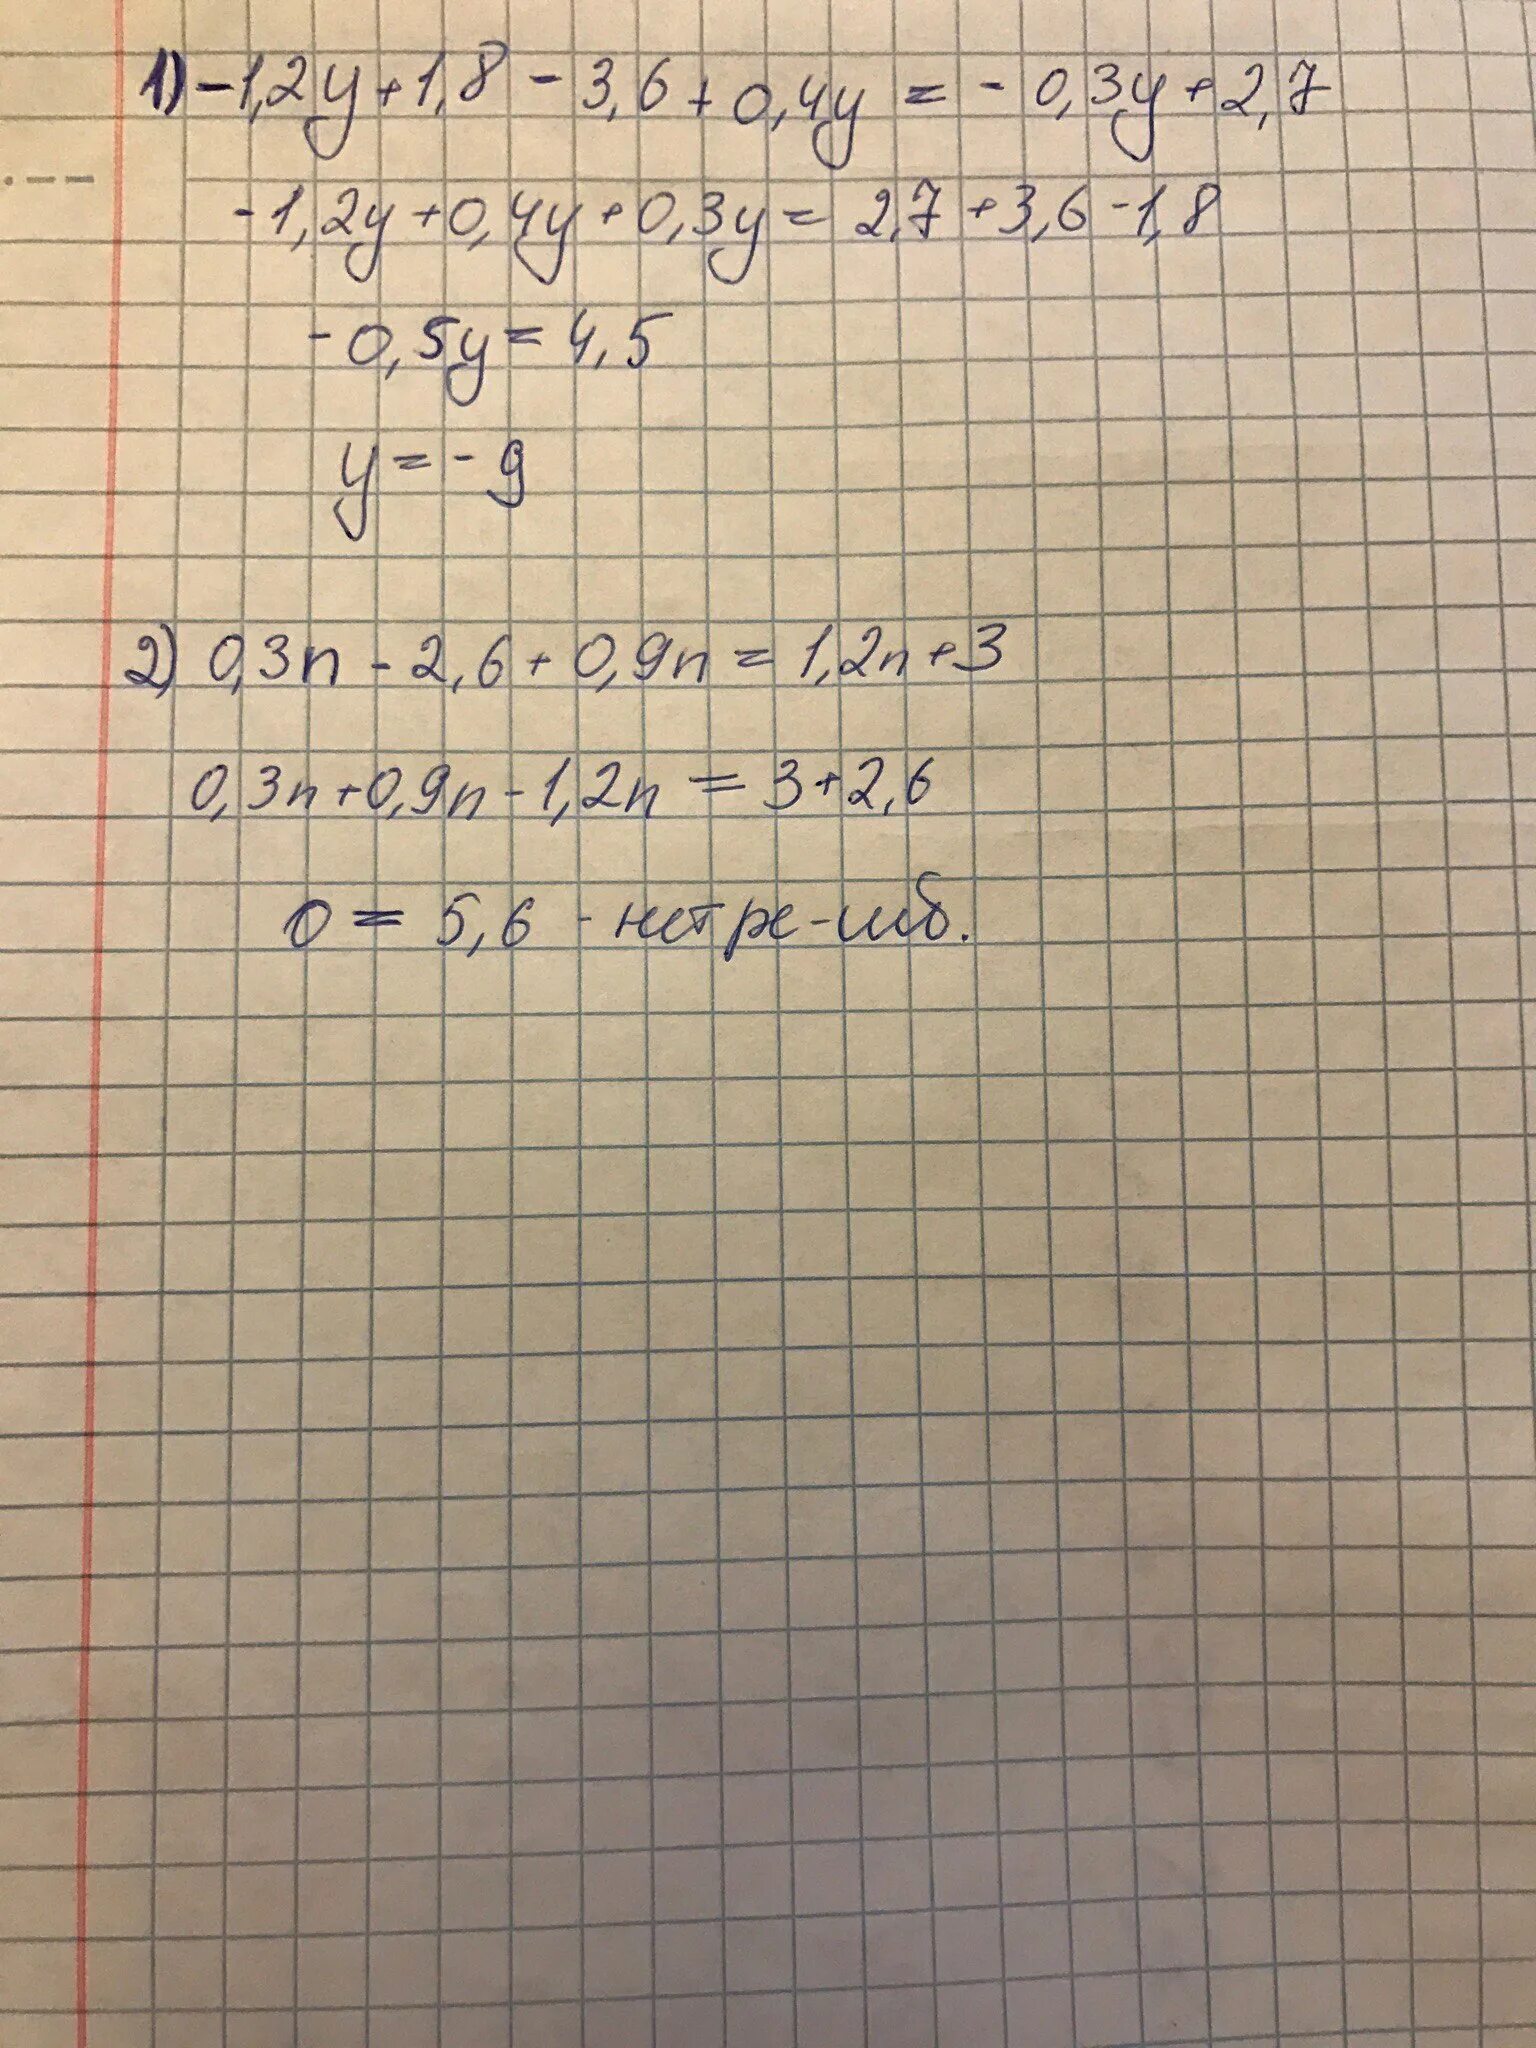 1) -1,2y+1,8 - 3,6+0,4y = - 0,3y+2,7
-1,2y+0,4y+0,3y= 2,7+3,6-1,8
-0,5y=4,5
y=-9
2) 0,3n-2,6+0,9n=1,2n+3
0,3n+0,9n-1,2n = 3+2,6
0 = 5,6 - нет ре-шб.